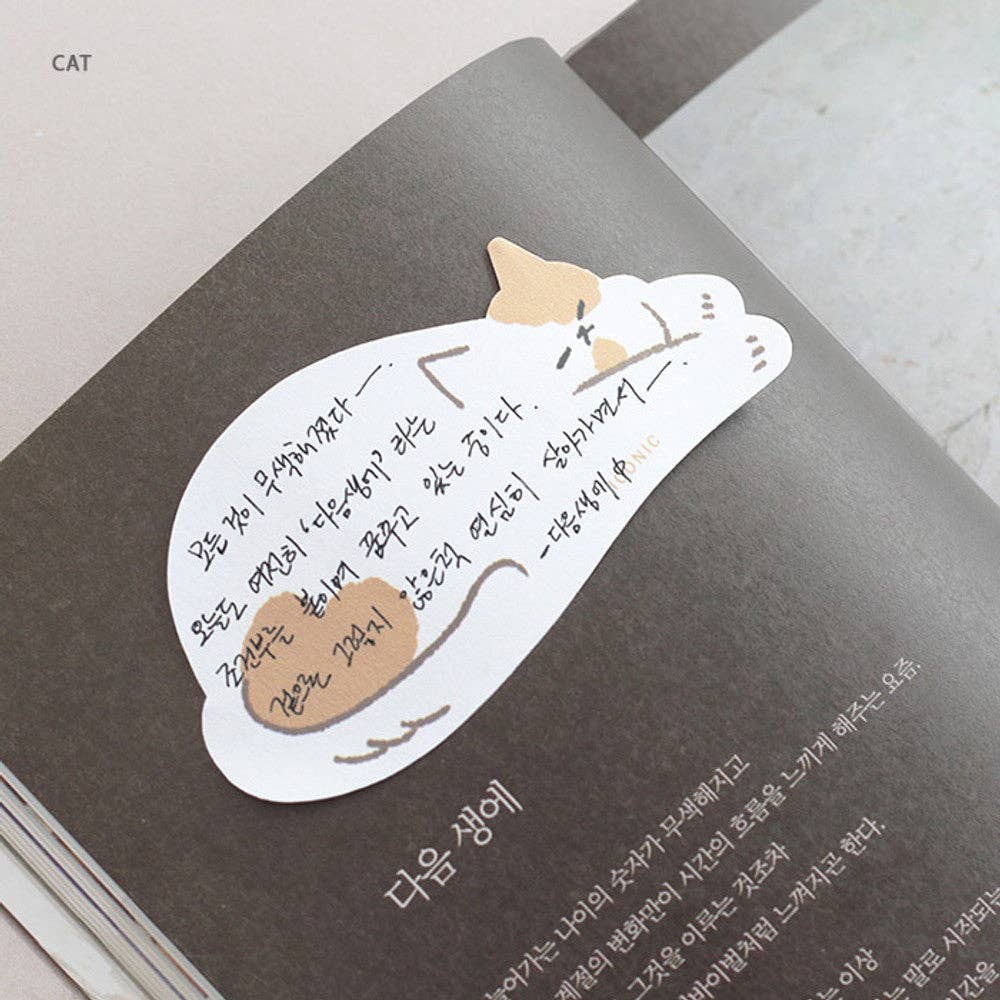 CAT
모든 것이 무색해졌다—.
오늘도 여전히 '다음생에' 라는
조건부를 붙이며 꿈꾸고 있는 중이다.
겉으론 그렇지 않은척 열심히 살아가면서—.
- 다음생에 中
ICONIC
다음 생에
늘어가는 나이의 숫자가 무색해지고
계절의 변화만이 시간의 흐름을 느끼게 해주는 요즘.
그것을 이루는 것조차
바이벌처럼 느껴지곤 한다.
는 이상
는 말로 시작되는
시간을